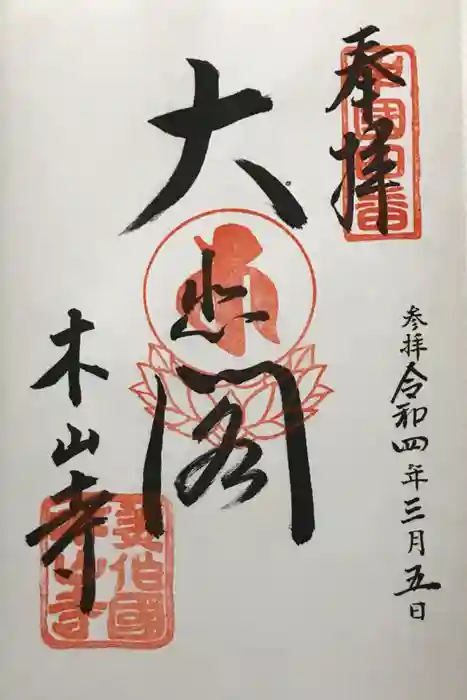 奉拝
中國四番
参拝 令和四年三月五日
大悲閣
木山寺
美作國
木山寺